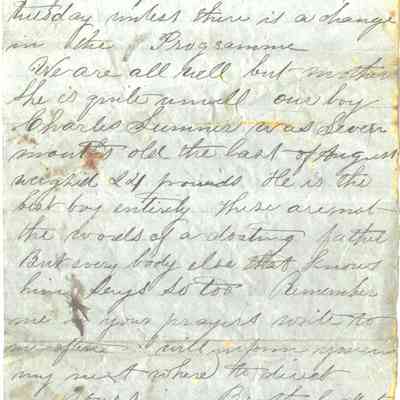 tuesday unless there is a change
in the Programme
We are all well but mother
She is quite unwell our boy
Charles Sumner was Seven
months old the last of August
weighed 24 pounds He is the
best boy entirely these are not
the words of a doating father
But every body else that knows
him Says So too Remember
me in your prayers write to
me often I will inform you in
my next where to direct